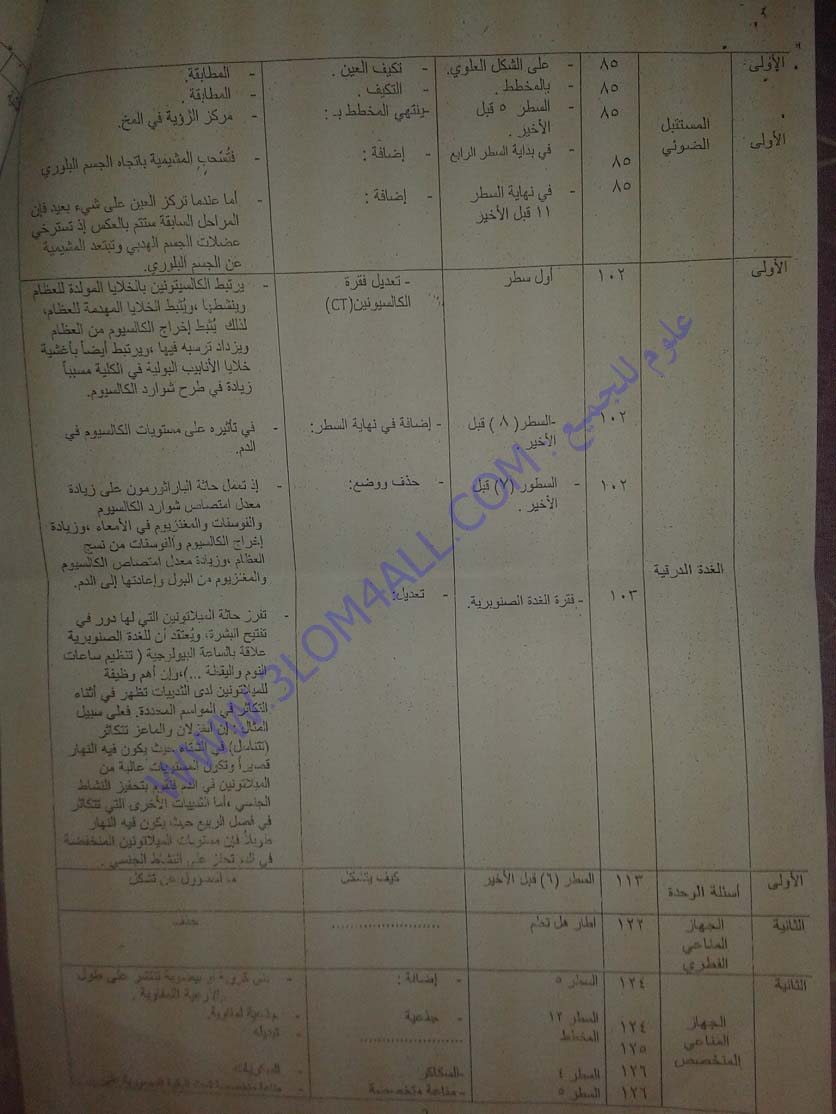 الأولى: ٨٥ - على الشكل العلوي. - تكيف العين . - المطابقة.
٨٥ - بالمخطط . - التكيف. - المطابقة .
المستقبل الضوئي ٨٥ - السطر ٥ قبل الأخير . -ينتهي المخطط بـ : - مركز الرؤية في المخ.
الأولى ٨٥ - في بداية السطر الرابع - إضافة : - فتُسْحب المشيمية باتجاه الجسم البلوري
٨٥ - في نهاية السطر ١١ قبل الأخير - إضافة : - أما عندما تركز العين على شيء بعيد فإن
المراحل السابقة ستتم بالعكس إذ تسترخي
عضلات الجسم الهدبي وتبتعد المشيمية
عن الجسم البلوري.
الأولى ١٠٢ أول سطر - تعديل فقرة الكالسيونين(CT) - يرتبط الكالسيتونين بالخلايا المولدة للعظام
وينشطها ،ويُثبط الخلايا المهدمة للعظام،
لذلك يُثبط إخراج الكالسيوم من العظام
ويزداد ترسبه فيها ،ويرتبط أيضاً بأغشية
خلايا الأنابيب البولية في الكلية مسبباً
زيادة في طرح شوارد الكالسيوم.
١٠٢ -السطر( ٨ ) قبل الأخير . - إضافة في نهاية السطر: - في تأثيره على مستويات الكالسيوم في
الدم.
١٠٢ - السطور (٧) قبل الأخير . - حذف ووضع: - إذ تعمل حاثة الباراثورمون على زيادة
معدل امتصاص شوارد الكالسيوم
والفوسفات والمغنزيوم في الأمعاء ،وزيادة
إخراج الكالسيوم والفوسفات من نسج
العظام ،وزيادة معدل امتصاص الكالسيوم
والمغنزيوم من البول وإعادتها إلى الدم.
الغدة الدرقية
١٠٣ - فقرة الغدة الصنوبرية. - تعديل: - تفرز حاثة الميلاتونين التي لها دور في
تفتيح البشرة، ويُعتقد أن للغدة الصنوبرية
علاقة بالساعة البيولوجية ( تنظيم ساعات
النوم واليقظة ...)،وإن أهم وظيفة
للميلاتونين لدى الثدييات تظهر في أثناء
التكاثر في المواسم المحددة. فعلى سبيل
المثال : إن الغزلان والماعز تتكاثر
(تتناسل) في الشتاء حيث يكون فيه النهار
قصيراً وتكون المستويات عالية من
الميلاتونين في الدم فتقوم بتحفيز النشاط
الجنسي ،أما الثدييات الأخرى التي تتكاثر
في فصل الربيع حيث يكون فيه النهار
طويلاً فإن مستويات الميلاتونين المنخفضة
في الدم تحفز على النشاط الجنسي .
الأولى أسئلة الوحدة ١١٣ السطر (٦) قبل الأخير كيف يتشكل ما المسؤول عن تشكل
الثانية الجهاز المناعي الفطري ١٢٢ إطار هل تعلم .................... حذف
الثانية ١٢٤ السطر ٥ - إضافة :
الجهاز المناعي المتخصص ١٢٤ السطر ١٢ - جذعية - جذعية لمفاوية.
١٢٥ المخطط ....................
١٢٦ السطر ٤ -السكاكر
١٢٦ السطر ٥ - مناعة متخصصة
علوم للجميع . WWW.3LOM4ALL.COM